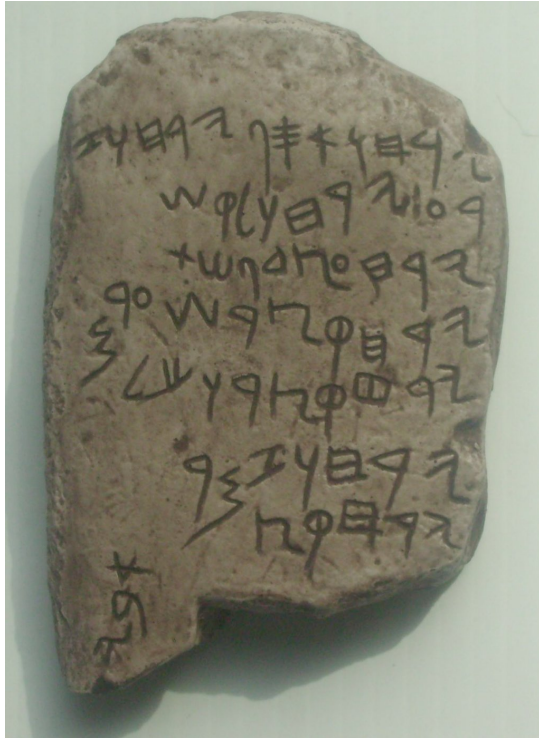 𐤉𐤓𐤇𐤅𐤀𐤎𐤐 𐤉𐤓𐤇𐤅𐤆
𐤓𐤏 𐤉𐤓𐤇𐤅𐤋𐤒𐤔
𐤉𐤓𐤇𐤏𐤑𐤃𐤐𐤔𐤕
𐤉𐤓𐤇𐤒𐤑𐤓𐤔𐤏𐤓𐤌
𐤉𐤓𐤇𐤒𐤑𐤓𐤅𐤊𐤋
𐤉𐤓𐤇𐤅𐤆𐤌𐤓
𐤉𐤓𐤇𐤒𐤑
𐤀𐤁𐤉